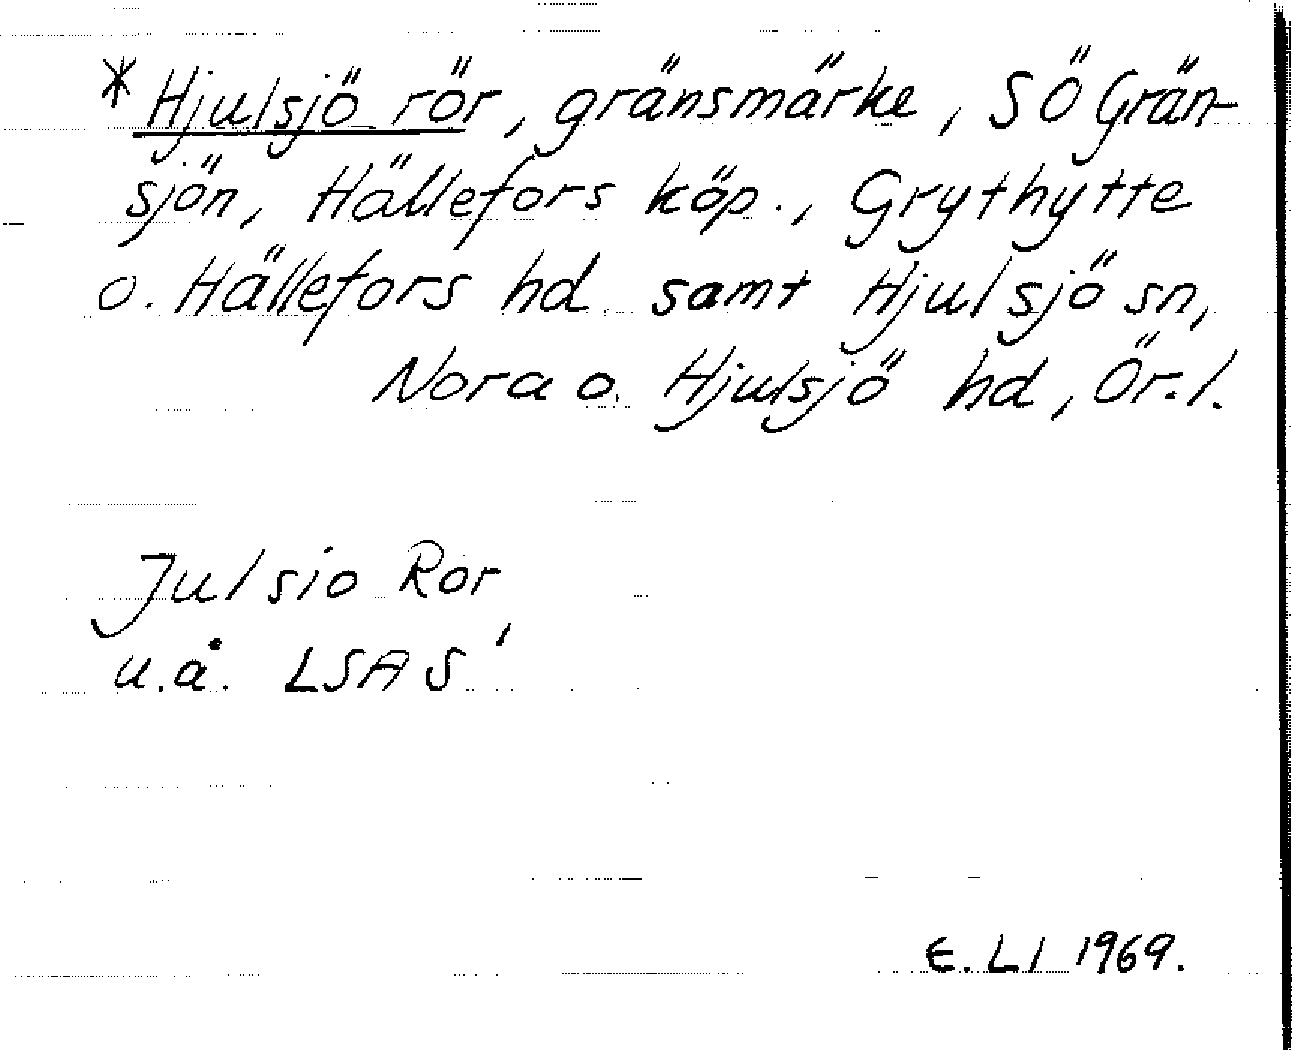 * Hjulsjö rör, gränsmärke, SÖ Grän-
sjön, Hällefors köp., Grythytte
o. Hällefors hd samt Hjulsjö sn,
Nora o. Hjulsjö hd, Ör.l.
Julsio Ror
u.å. LSA S'
E. LI 1969.